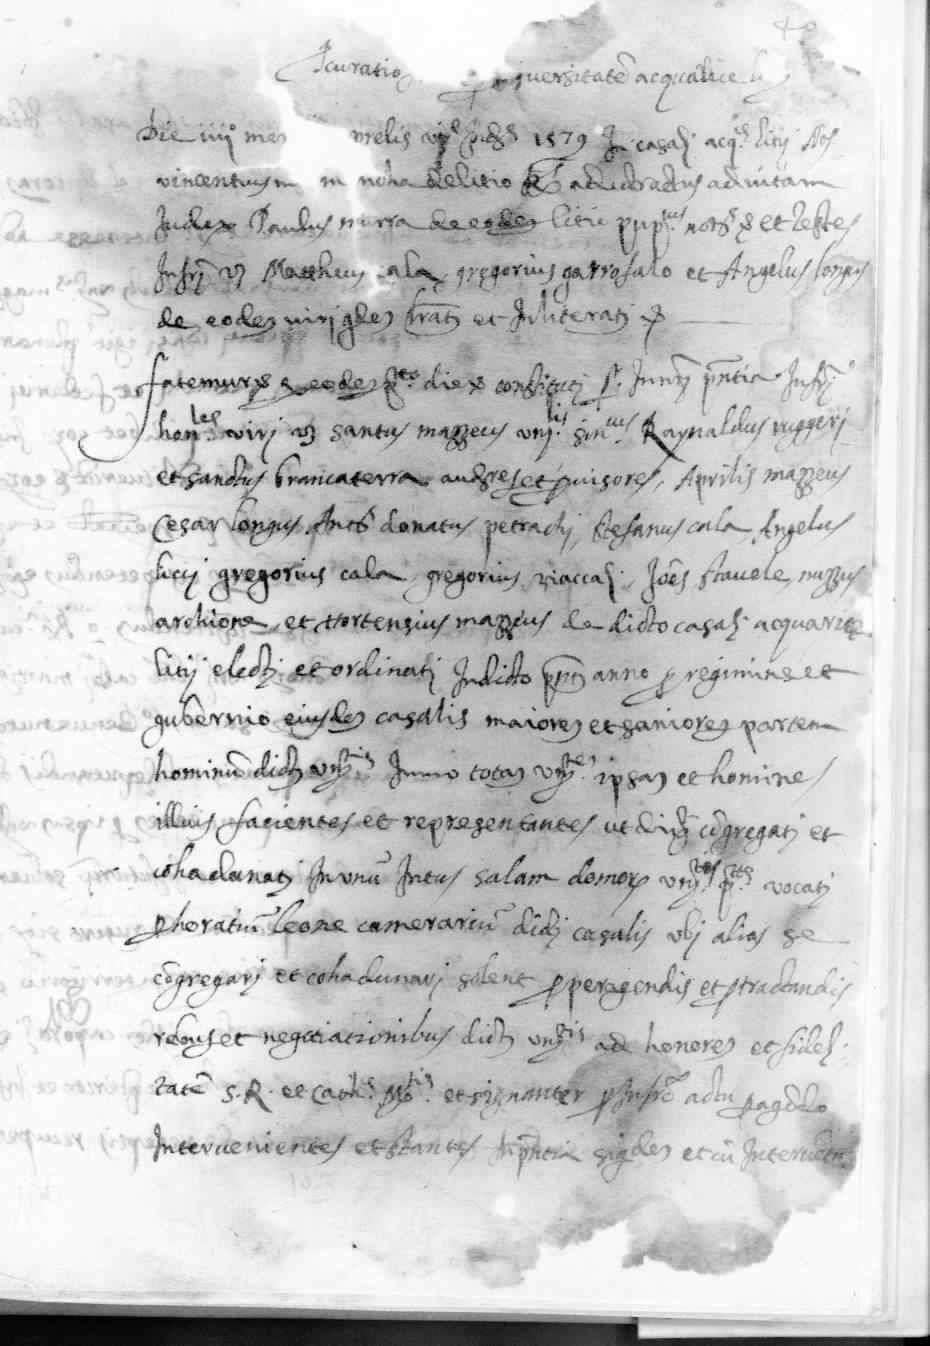 40
Pcuratio p iversitate acquarice li
Die iiij° men melis vij^e Ind^s 1579 In casali acq^ce litij Nos
vincentius m noha delitio ad contractus ad vitam
Judex Paulus murra de eodem litio pnp^tus not^s et Testes
Infri v3 Mattheus cala, gregorius garrofalo et Angelus longus
de eodem viri qdem lrati et Inliterati
fatemur eodem p^tto die constituti Inrj pntia Infrj
hon^les viri v3 santus mazzeus vnj^lis sin^cus Raynaldus ruggerj
et sanctus brancaterra auditores et pvisores, Aprilis mazzeus
Cesar longus Ant^s donatus petrachi, stefanus cala Angelus
lucij gregorius cala, gregorius viaccal Joes stavele, nuzzus
archione, et Hortensius mazzeus de dicto casali acquarice
litij electi et ordinati In dicto pnti anno p regimine et
gubernio eiusdem casalis maiorem et saniorem partem
hominu dicte vnj^tis Immo totam vnj^tem ipsam et homines
illius facientes et representantes ut dixer congregati et
cohadunati In unu Intus salam domor vnj^tis p^tte vocati
p horatiu leone camerariu dicti casalis vbj alias se
congregarj et cohadunarj solent p peragendis et ptractandis
rebus et negotiationibus dicte vnj^tis ad honorem et fideli
tate S. R. et Cath^e M^tis et signanter p Infro actu pagendo
Intervenientes et stantes In pntia siqdem et cu Interventu